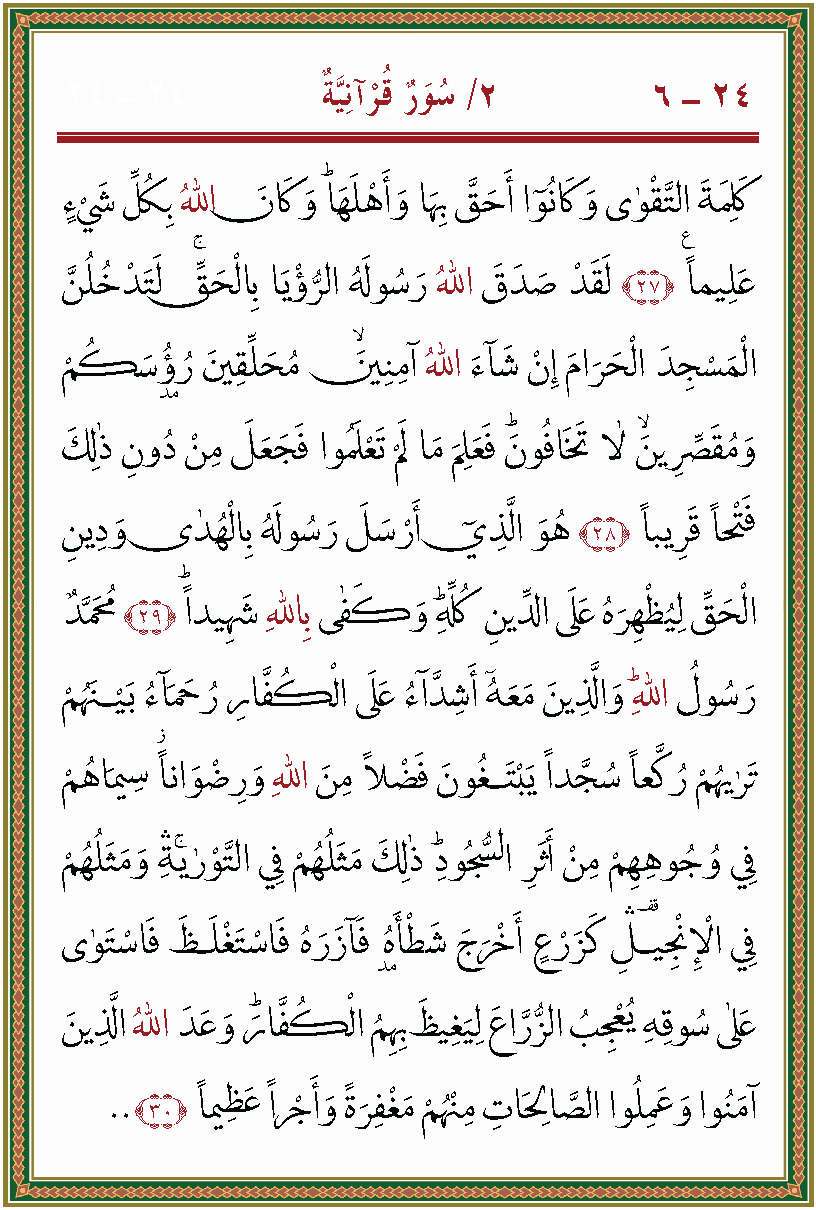 ٢٤ – ٦ ٢/ سُوَرٌ قُرْآنِيَّةٌ ٢٤ – ٢٤
كَلِمَةَ التَّقْوٰى وَكَانُٓوا أَحَقَّ بِهَا وَأَهْلَهَاۜ وَكَانَ اللهُ بِكُلِّ شَيْءٍ
عَلِيماًࣖ ﴿٢٧﴾ لَقَدْ صَدَقَ اللهُ رَسُولَهُ الرُّؤْيَا بِالْحَقِّۚ لَتَدْخُلُنَّ
الْمَسْجِدَ الْحَرَامَ إِنْ شَٓاءَ اللهُ آمِنِينَۙ مُحَلِّقِينَ رُؤُسَكُمْ
وَمُقَصِّرِينَۙ لَا تَخَافُونَۜ فَعَلِمَ مَا لَمْ تَعْلَمُوا فَجَعَلَ مِنْ دُونِ ذٰلِكَ
فَتْحاً قَرِيباً ﴿٢٨﴾ هُوَ الَّذِٓي أَرْسَلَ رَسُولَهُ بِالْهُدٰى وَدِينِ
الْحَقِّ لِيُظْهِرَهُ عَلَى الدِّينِ كُلِّهِۜ وَكَفٰى بِاللهِ شَهِيداًۜ ﴿٢٩﴾ مُحَمَّدٌ
رَسُولُ اللهِۜ وَالَّذِينَ مَعَهُٓ أَشِدَّٓاءُ عَلَى الْكُفَّارِ رُحَمَٓاءُ بَيْنَهُمْ
تَرٰيهُمْ رُكَّعاً سُجَّداً يَبْتَغُونَ فَضْلاً مِنَ اللهِ وَرِضْوَاناًۘ سِيمَاهُمْ
فِي وُجُوهِهِمْ مِنْ أَثَرِ السُّجُودِۜ ذٰلِكَ مَثَلُهُمْ فِي التَّوْرٰيةِۚۛ وَمَثَلُهُمْ
فِي الْإِنْجِيلِۛ كَزَرْعٍ أَخْرَجَ شَطْأَهُ فَاٰزَرَهُ فَاسْتَغْلَظَ فَاسْتَوٰى
عَلٰى سُوقِهِ يُعْجِبُ الزُّرَّاعَ لِيَغِيظَ بِهِمُ الْكُفَّارَۜ وَعَدَ اللهُ الَّذِينَ
آمَنُوا وَعَمِلُوا الصَّالِحَاتِ مِنْهُمْ مَغْفِرَةً وَأَجْراً عَظِيماً ﴿٣٠﴾ ..